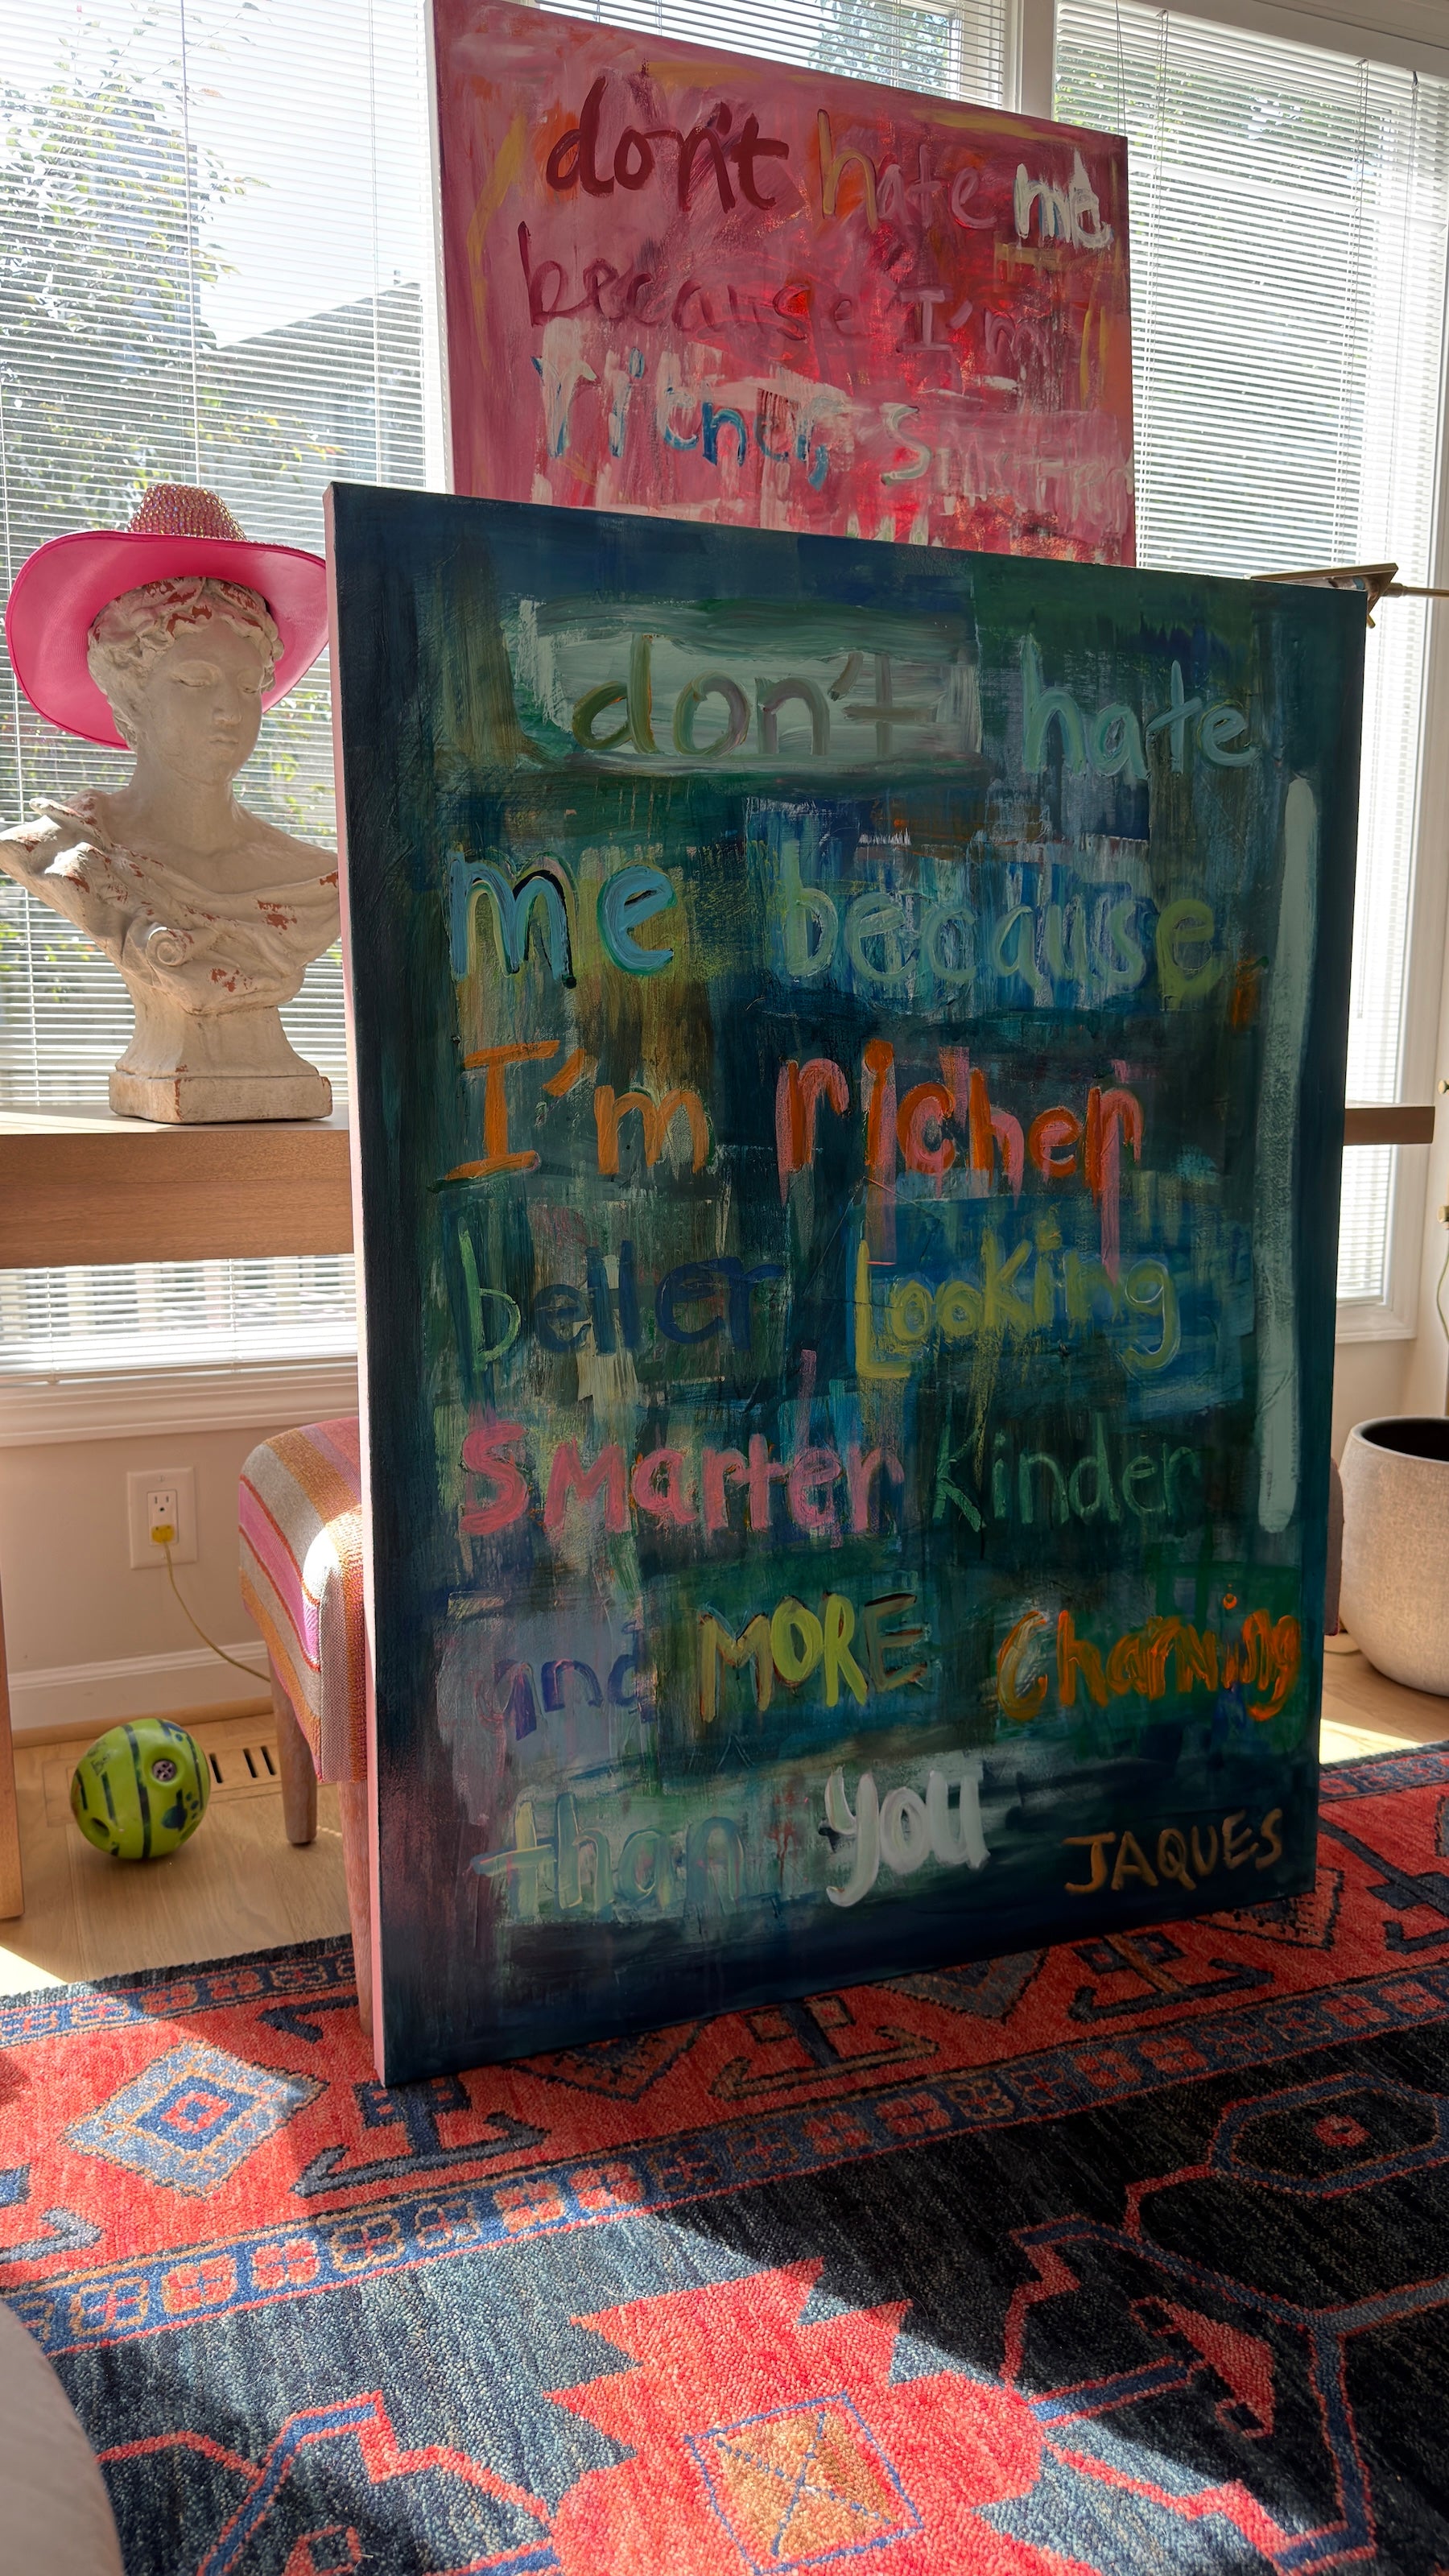 don't hate me
because I'm
richer, smarter
don't hate
me because
I'm richer
better Looking
Smarter Kinder
and MORE Charming
than you
JAQUES